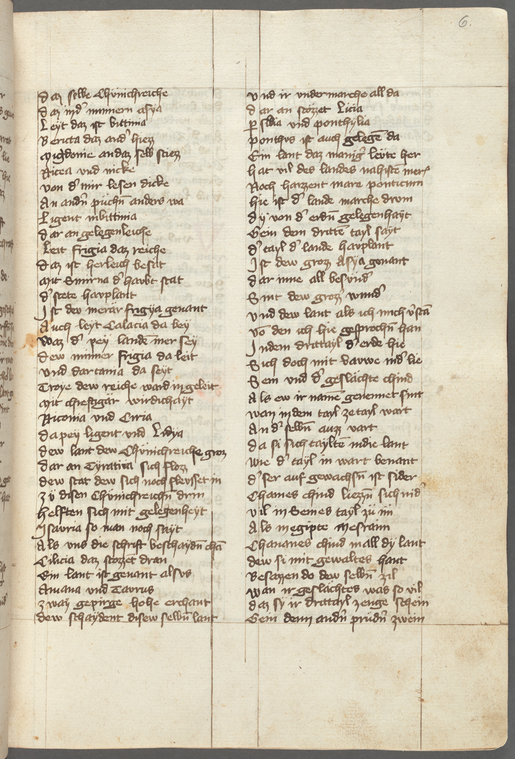 6.
daz selbe Chünichreiche
daz in d' innnern asya
Leyt daz ist bittinia
Bericta daz and' hiez
Migdonie an daz selb stiez
Nicea und nicke
von d' mir lesen dicke
An andn püchn anders wa
Ligent in bittinia
dar an gelegenleiche
Leit frigia daz reiche
daz ist herleich besat
Mit Smirna d' haubt stat
d' stete haubtlant
Ist dew merär frigya genant
Auch leyt Galacia da bey
Waz d' pey lande mer sey
dew minner frigia da leit
Und dartania da seyt
Troye dew reiche ward in geleit
Mit chreftiger wirdichayt
Liconia und Ciria
da pey ligent und Lidya
dew lant dew Chünichreiche groz
dar an Tyratira sich floz
dew stat dew sich noch slewsset in
Zu disen Chünichreichn drin
helften sich mit gelegenheyt
ysauria so man noch sayt
Als uns die schrift beschaydn chan
Cilicia daz stozet dran
Ein lant ist genant alsus
Amana und Taurus
Zway gepirge hohe erchant
dew schaydent disew selbn lant
Und ir undermarche all da
dar an stozet Licia
pisidia und ponthylia
ponthus ist auch gelegen da
Ein lant daz manig' leyte her
hat vil des landes nahiste mer
Noch haizzent mare ponticum
hie ist d' lande marche drom
dy von d' erdn gelegenhayt
Gein dem dritte tayl sayt
d' tayl d' lande haubtlant
Ist dew groz Asya genant
dar inne all besund'
Sint dew groz wund'
Und dew lant als ich mich v'stan
Vo den ich hie gesprochn han
In dem drittayl d' erde hie
Sich doch mit barwe nid' lie
Sem und d' geslächte chind
Als ew ir name genennet sint
wan in dem tayl ze tayl wart
An d' selbn auz vart
da si sich taylten in die lant
wie d' tayl in wart benant
d' ser auf gewachsn ist sider
Chames chind liezzn sich nid'
Vil in Semes tayl zu im
Als in egipte Mesraim
Chananes chind in all dy lant
dew si mit gewaltes hant
Besazen do dew selbn zil
wan ir geslächtes was so vil
daz sy ir drittayl ze enge schein
Gein denn andn prüdn zwein